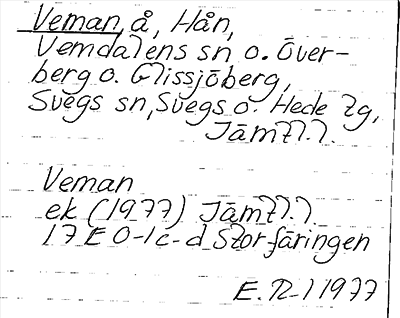 Veman, å, Hån,
Vemdalens sn o. Över-
berg o. Glissjöberg,
Svegs sn, Svegs o. Hede tg,
Jämtl.
Veman
ek (1977) Jämtl.
17E 0-1c-d Storfäringen
E. 1977